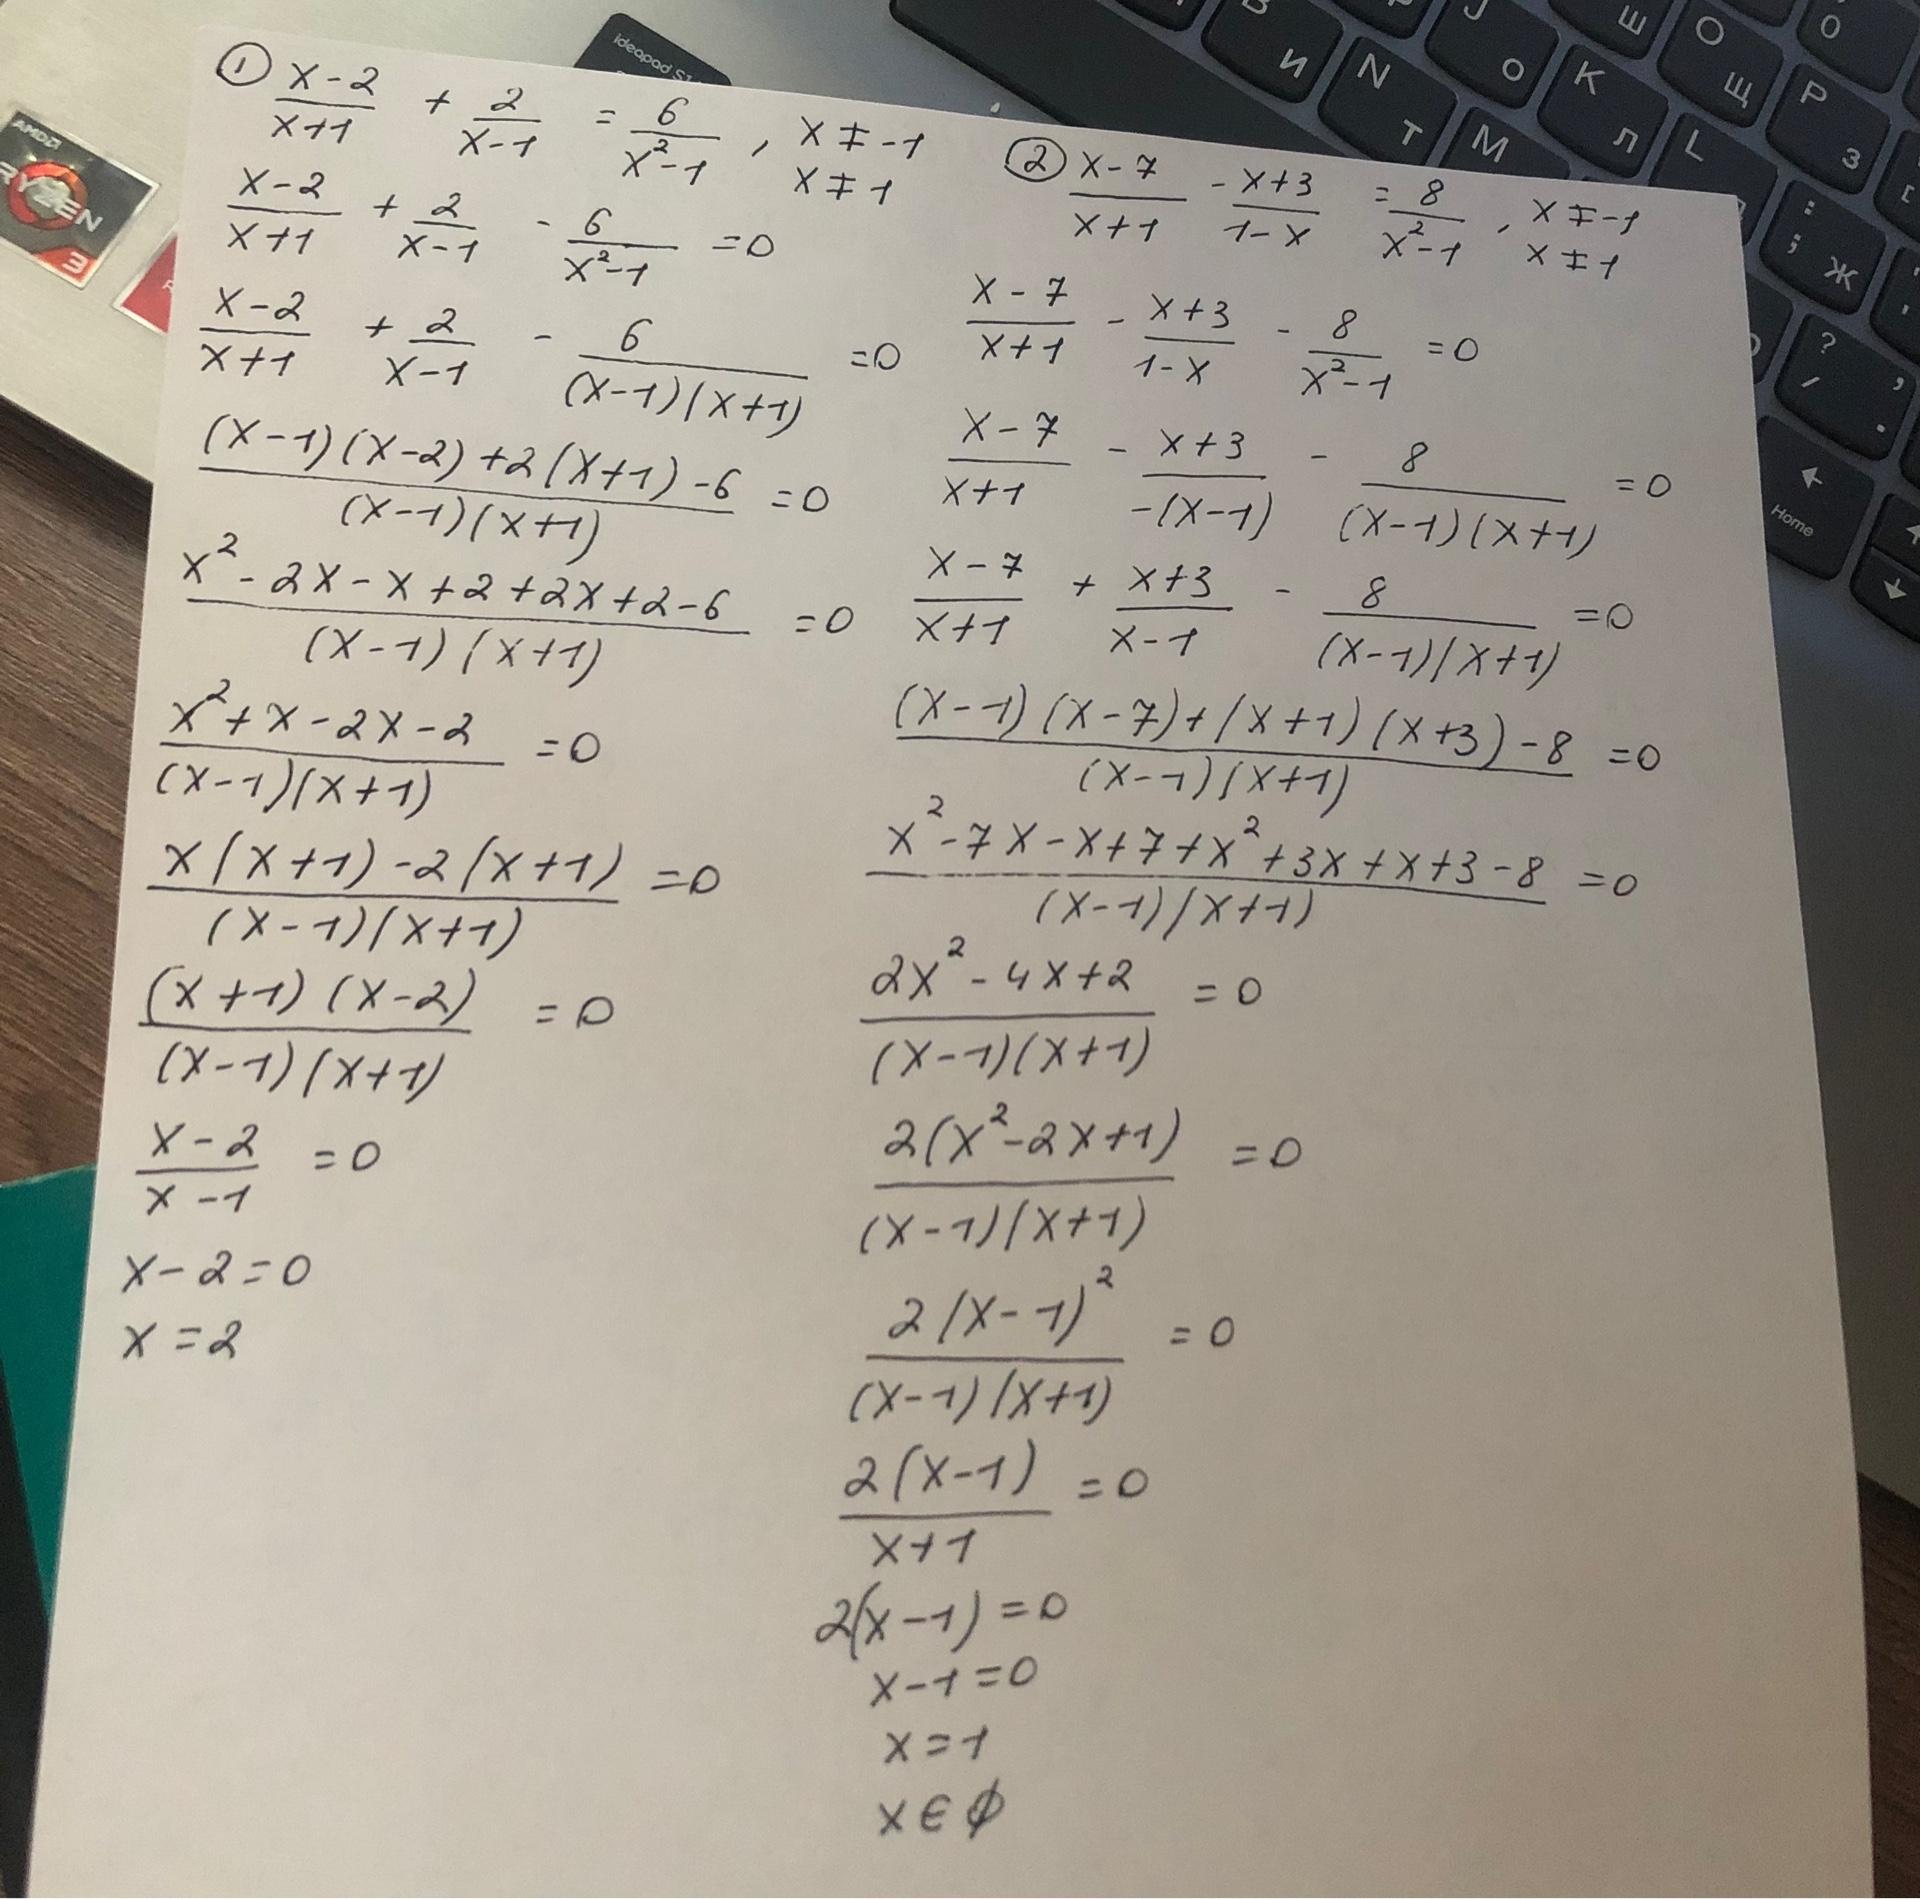 ① (x-2)/(x+1) + 2/(x-1) = 6/(x²-1), x≠-1
x≠1
(x-2)/(x+1) + 2/(x-1) - 6/(x²-1) =0
(x-2)/(x+1) + 2/(x-1) - 6/((x-1)(x+1)) =0
((x-1)(x-2)+2(x+1)-6)/((x-1)(x+1)) =0
(x²-2x-x+2+2x+2-6)/((x-1)(x+1)) =0
(x²+x-2x-2)/((x-1)(x+1)) =0
(x(x+1)-2(x+1))/((x-1)(x+1)) =0
((x+1)(x-2))/((x-1)(x+1)) =0
(x-2)/(x-1) =0
x-2=0
x=2
② (x-7)/(x+1) - (x+3)/(1-x) = 8/(x²-1), x≠-1
x≠1
(x-7)/(x+1) - (x+3)/(1-x) - 8/(x²-1) =0
(x-7)/(x+1) - (x+3)/(-(x-1)) - 8/((x-1)(x+1)) =0
(x-7)/(x+1) + (x+3)/(x-1) - 8/((x-1)(x+1)) =0
((x-1)(x-7)+(x+1)(x+3)-8)/((x-1)(x+1)) =0
(x²-7x-x+7+x²+3x+x+3-8)/((x-1)(x+1)) =0
(2x²-4x+2)/((x-1)(x+1)) =0
(2(x²-2x+1))/((x-1)(x+1)) =0
(2(x-1)²)/((x-1)(x+1)) =0
(2(x-1))/(x+1) =0
2(x-1)=0
x-1=0
x=1
x∈∅
AMD
RYZEN
3
ideapad S1
В И
N Т
J О
M
K Л
Ш
L
O Щ
P З
0
: ; Ж
? /
Home